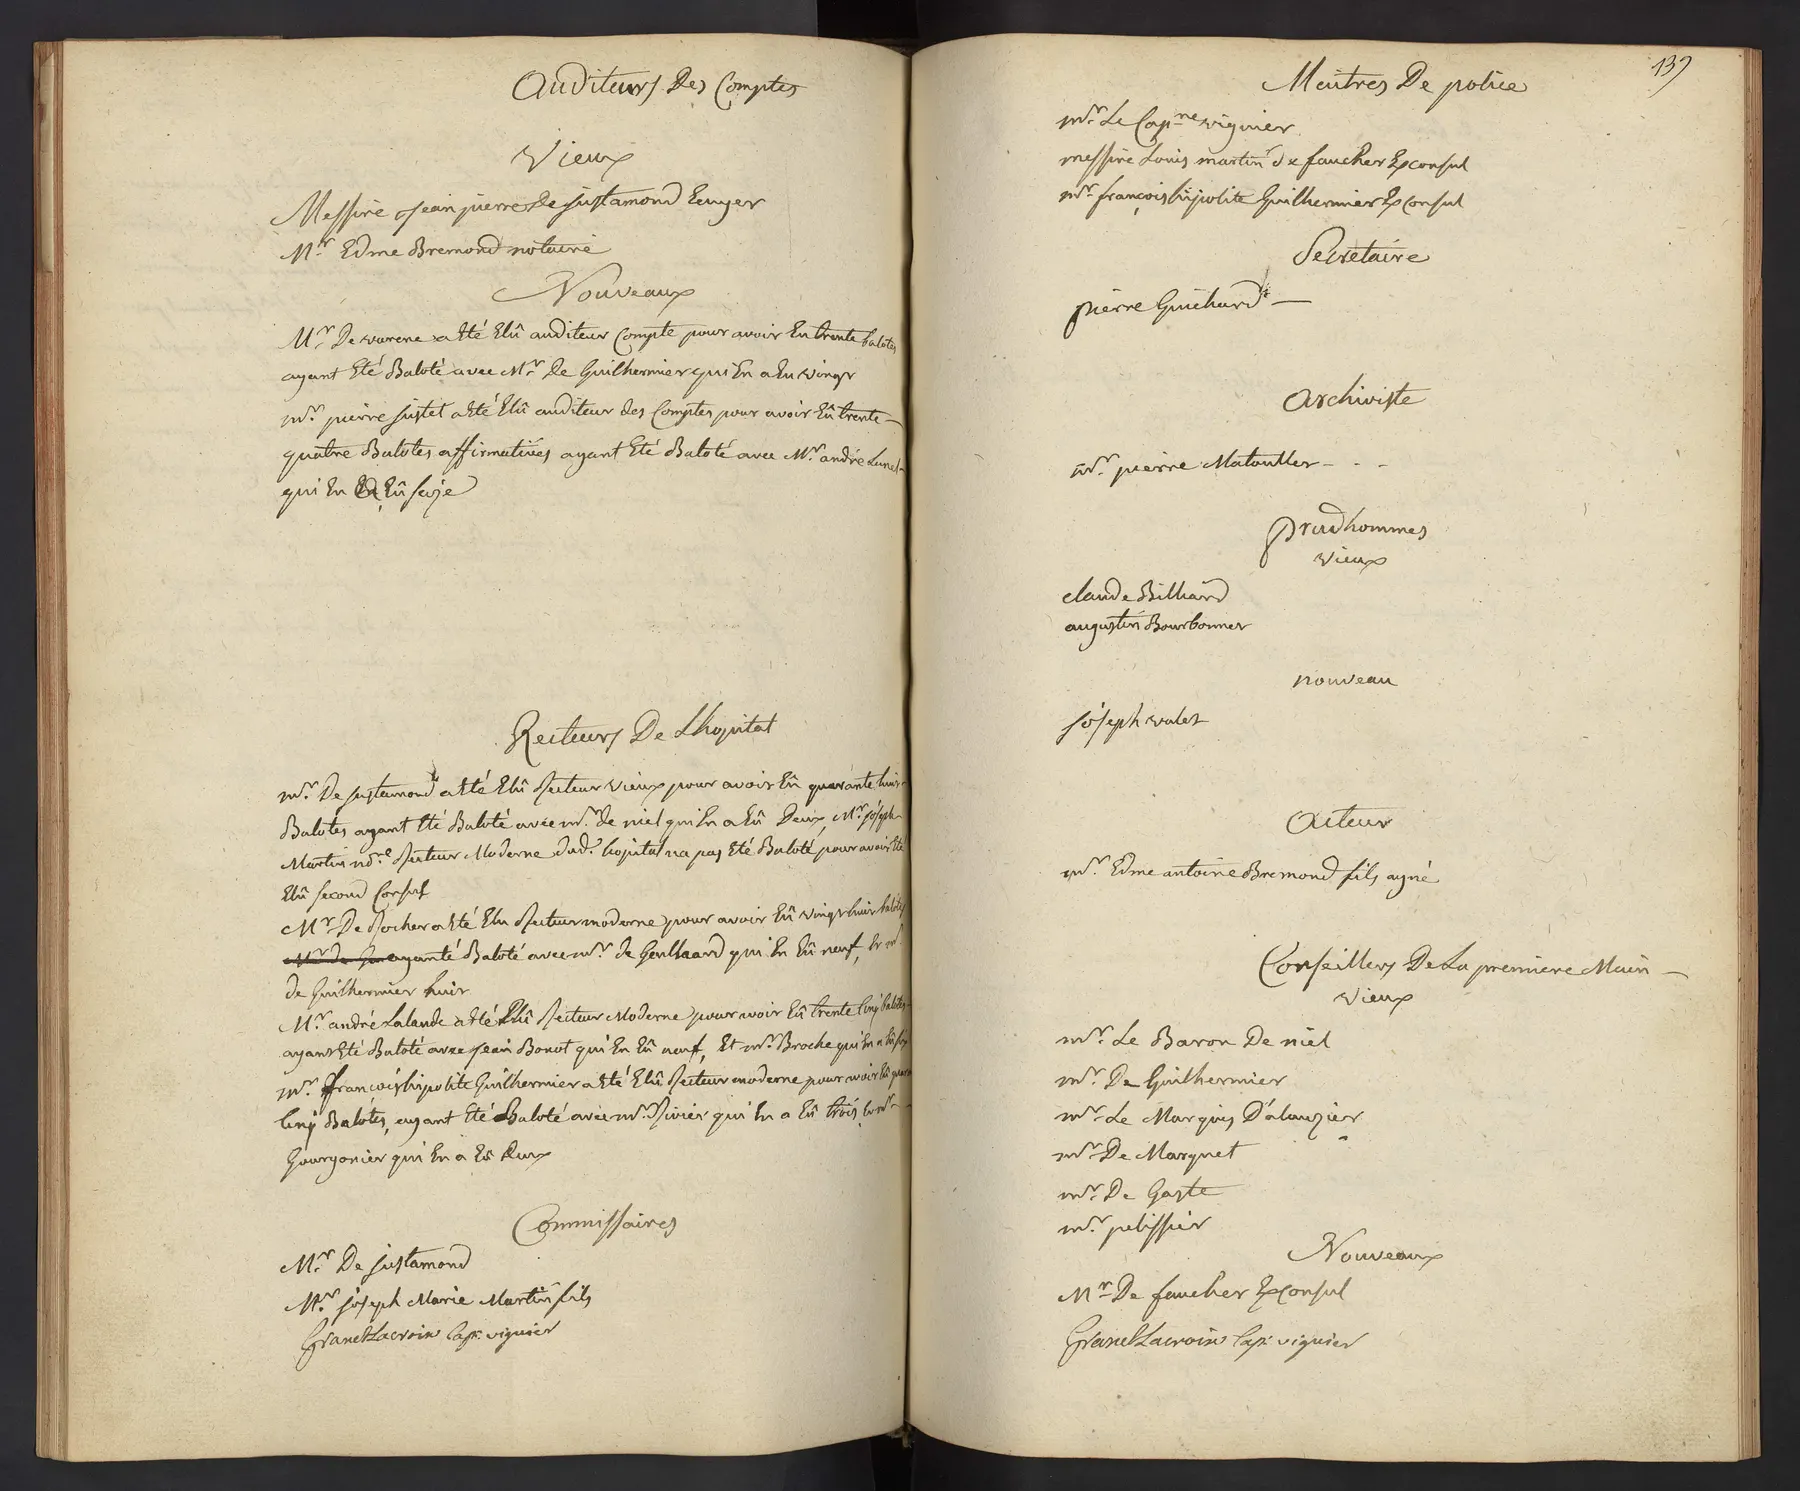 Auditeurs Des Comptes
Vieux
Messire Jean pierre De justamond Ecuyer
Mr. Edme Bremond notaire
Nouveaux
Mr. De varene a Eté Elû auditeur Compte pour avoir Eu trente balotes
ayant Eté Baloté avec Mr. De Guilhermier qui En a Eu vingt
mr. pierre justet a Eté Elû auditeur des Comptes pour avoir Eû trente
quatre Balotes affirmatives ayant Eté Baloté avec Mr. andré Lunel
qui En a Eû seize
Recteurs De Lhopital
mr. De justamond a Eté Elû Recteur vieux pour avoir Eû quarante huit
Balotes ayant Eté Baloté avec mr. de niel qui En a Eû Deux, Mr. joseph
Martin Recteur Moderne dud. hopital na pas Eté Baloté pour avoir Eté
Elû second Consul
Mr. De Rocher a Eté Elu Recteur moderne pour avoir Eû vingt huit balotes
ayanté Baloté avec mr. de qui En Eû neuf, Et mr.
de Guilhermier huit
Mr. andré Lalande a Eté Elû Recteur Moderne pour avoir Eû trente Cinq balotes
ayant Eté Baloté avec jean Bonot qui En Eû neuf, Et mr. Broche qui En a Eû six
mr. françois hipolite Guilhermier a Eté Elû Recteur moderne pour avoir Eû
Cinq Balotes, ayant Eté Baloté avec mr. Rivier qui En a Eû trois, Et mr.
Gourgonier qui En a Eû Deux
Commissaires
Mr. De justamond
Mr. joseph Marie Martin fils
Granet Lacroix Cap. viguier
137
Meitres De police
mr. Le Capne viguier
messire Louis martin de faucher Exconsul
mr. françois hipolite Guilhermier Exconsul
Secretaire
pierre Guichard
Archiviste
mr. pierre Mataullet - - -
prudhommes
vieux
claude Billiard
augustin Bourbonner
nouveau
joseph valet
Acteur
mr. Edme antoine Bremond fils ayné
Conseillers De La premiere Main
Vieux
mr. Le Baron De niel
mr. De Guilhermier
mr. Le Marquis D'alauzier
mr. De Marquet
mr. De Gaste
mr. pelissier
Nouveaux
Mr. De faucher Exconsul
Granet Lacroix Cap. viguier